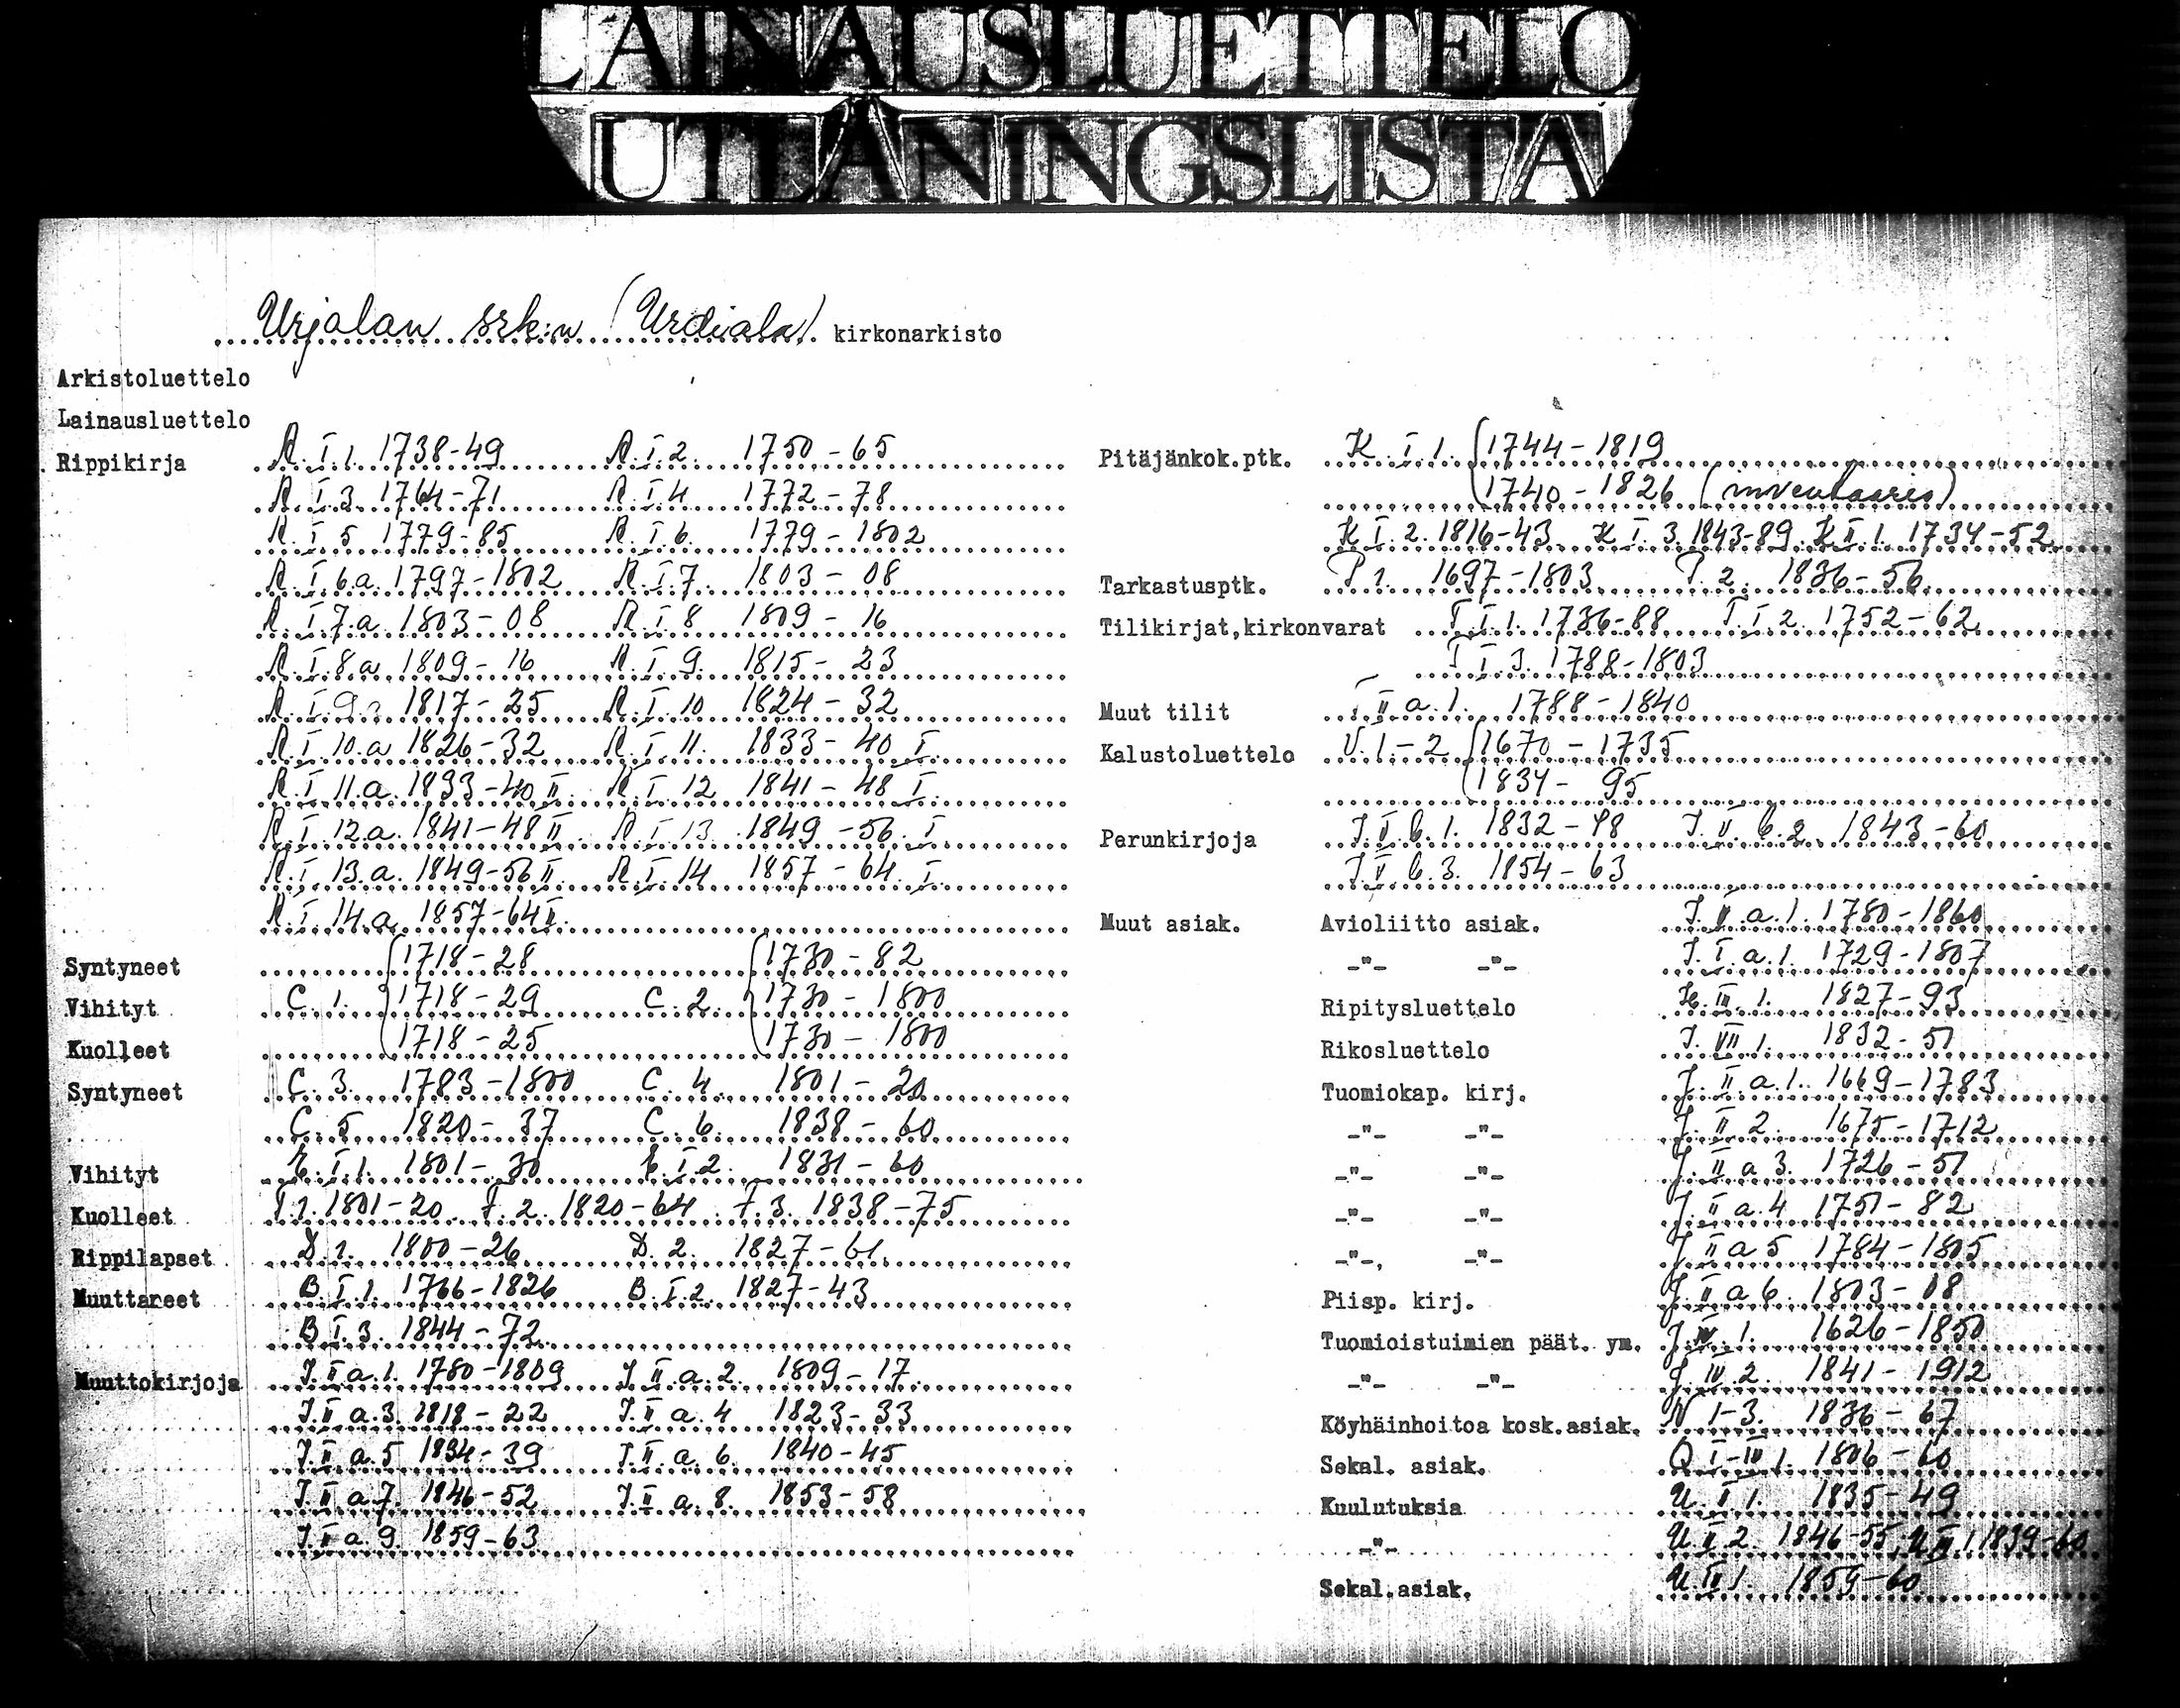 LAINAUSLUETTELO
UTLÅNINGSLISTA
Urjalan srk:n (Urdiala) kirkonarkisto
Arkistoluettelo
Lainausluettelo
Rippikirja A.I.1. 1738-49 A.I.2. 1750-65
A.I.3. 1764-71 A.I.4 1772-78
A.I.5 1779-85 A.I.6. 1779-1802
A.I.6.a. 1797-1802 A.I.7. 1803-08
A.I.7.a. 1803-08 A.I.8 1809-16
A.I.8.a 1809-16 A.I.9. 1815-23
A.I.9.a 1817-25 A.I.10 1824-32
A.I.10.a 1826-32 A.I.11. 1833-40 I.
A.I.11.a. 1833-40 II. A.I.12 1841-48 I.
A.I.12.a. 1841-48 II. A.I.13. 1849-56. I.
A.I.13.a. 1849-56 II. A.I.14 1857-64. I.
A.I.14.a. 1857-64 II.
Syntyneet 1718-28 1730-82
Vihityt C.1. 1718-29 C.2. 1730-1800
Kuolleet 1718-25 1730-1800
Syntyneet C.3. 1783-1800 C.4. 1801-20
C.5 1820-37 C.6. 1838-60
Vihityt E.I.1. 1801-30 E.I.2. 1831-60
Kuolleet F.1. 1801-20 F.2. 1820-64 F.3. 1838-75
Rippilapset D.1. 1800-26 D.2. 1827-61.
Muuttareet B.I.1. 1766-1826 B.I.2. 1827-43
B.I.3. 1844-72
Muuttokirjoja J.II.a.1. 1780-1809 J.II.a.2. 1809-17.
J.II.a.3. 1818-22 J.II.a.4 1823-33
J.II.a.5 1834-39 J.II.a.6. 1840-45
J.II.a.7. 1846-52 J.II.a.8. 1853-58
J.II.a.9. 1859-63
Pitäjänkok.ptk. K.I.1. 1744-1819
1740-1826 (inventaario)
K.I.2. 1816-43 K.I.3. 1843-89. K.II.1. 1734-52
Tarkastusptk. P.1. 1697-1803 P.2. 1836-56
Tilikirjat,kirkonvarat T.I.1. 1736-88 T.I.2. 1752-62
T.I.3. 1788-1803
Muut tilit T.II.a.1. 1788-1840
Kalustoluettelo V.1.-2 1670-1735
1834-95
Perunkirjoja J.V.b.1. 1832-48 J.V.b.2. 1843-60
J.V.b.3. 1854-63
Muut asiak. Avioliitto asiak. J.V.a.1. 1780-1860
-"- -"- J.I.a.1. 1729-1807
Ripitysluettelo III.1. 1827-93
Rikosluettelo J.VII.1. 1832-51
Tuomiokap. kirj. J.II.a.1. 1669-1783
-"- -"- J.II 2. 1675-1712
-"- -"- J.II a 3. 1726-51
-"- -"- J.II a.4 1751-82
-"-, -"- J.II a 5 1784-1805
Piisp. kirj. J.II a 6. 1803-08
Tuomioistuimien päät. ym. J.IV.1. 1626-1850
-"- -"- J.IV.2. 1841-1912
Köyhäinhoitoa kosk.asiak. N 1-3. 1836-67
Sekal. asiak. Q I-IV 1. 1806-60
Kuulutuksia U.I 1. 1835-49
-"- U.II 2. 1846-55, U.II 1 1839-60
Sekal.asiak. U.III 1. 1859-60